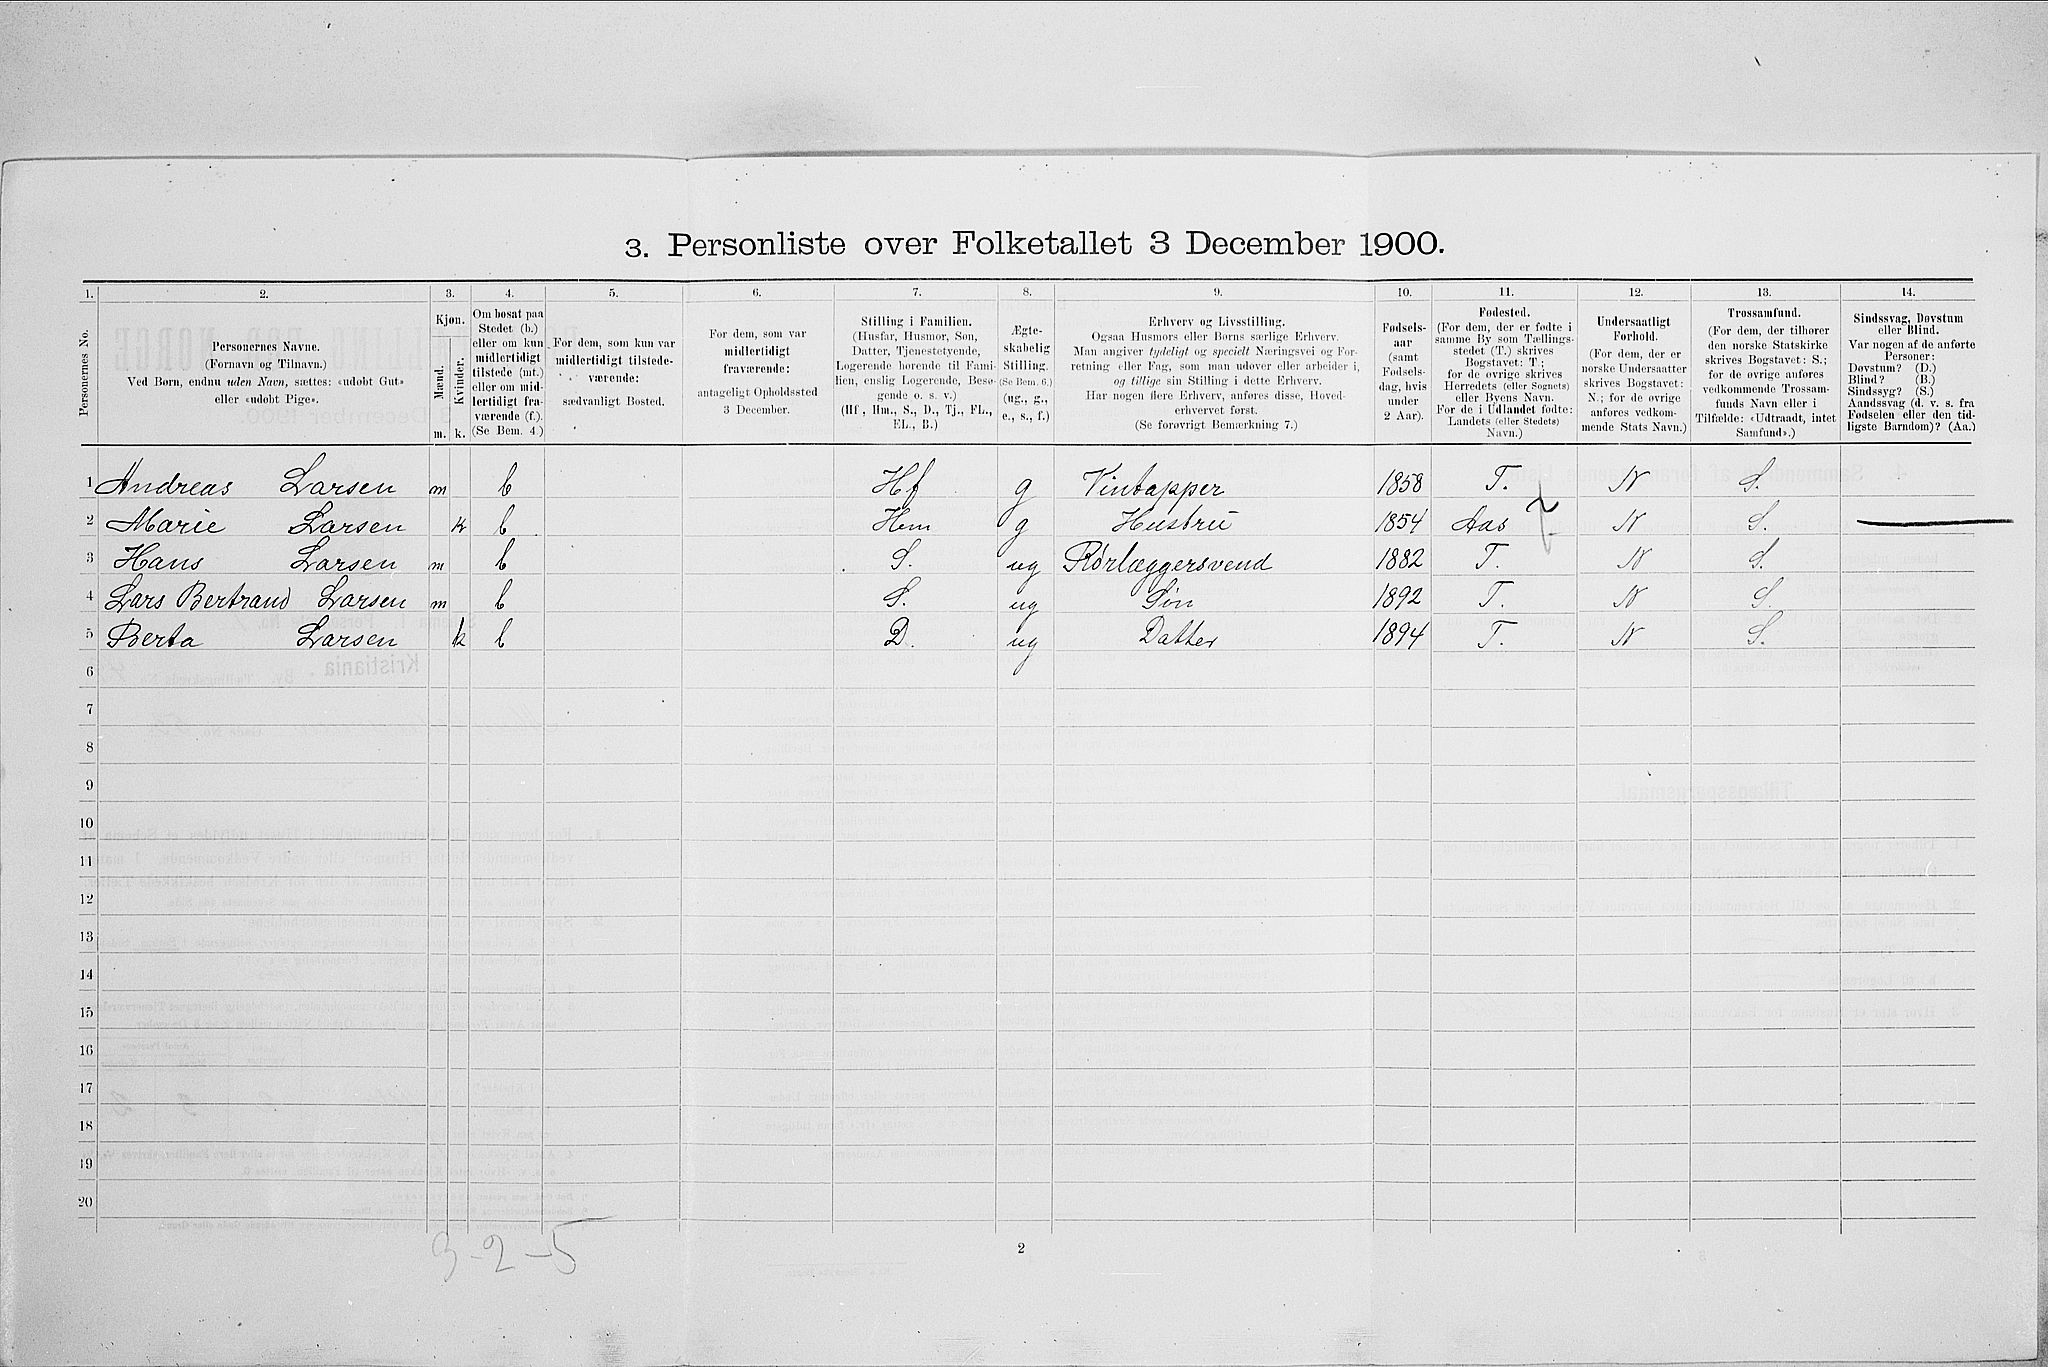 3. Personliste over Folketallet 3 December 1900.
1. 2. 3. 4. 5. 6. 7. 8. 9. 10. 11. 12. 13. 14.
Personernes No.
Personernes Navne.
(Fornavn og Tilnavn.)
Ved Børn, endnu uden Navn, sættes: «udobt Gut»
eller «udobt Pige».
Kjøn.
Mænd.
Kvinder.
m. k.
Om bosat paa
Stedet (b.)
eller om kun
midlertidigt
tilstede (mt.)
eller om mid-
lertidigt fra-
værende (f.).
(Se Bem. 4.)
For dem, som kun var
midlertidigt tilstede-
værende:
sædvanligt Bosted.
For dem, som var
midlertidigt
fraværende:
antageligt Opholdssted
3 December.
Stilling i Familien.
(Husfar, Husmor, Søn,
Datter, Tjenestetyende,
Logerende hørende til Fami-
lien, enslig Logerende, Besø-
gende o. s. v.)
(Hf, Hm., S., D., Tj., FL.,
EL., B.)
Ægte-
skabelig
Stilling.
(Se Bem. 6.)
(ug., g.,
e., s., f.)
Erhverv og Livsstilling.
Ogsaa Husmors eller Børns særlige Erhverv.
Man angiver tydeligt og specielt Næringsvei og For-
retning eller Fag, som man udøver eller arbeider i,
og tillige sin Stilling i dette Erhverv.
Har nogen flere Erhverv, anføres disse, Hoved-
erhvervet først.
(Se forøvrigt Bemærkning 7.)
Fødsels-
aar
(samt
Fødsels-
dag, hvis
under
2 Aar).
Fødested.
(For dem, der er fødte i
samme By som Tællings-
stedet (T.) skrives
Bogstavet: T.;
for de øvrige skrives
Herredets (eller Sognets)
eller Byens Navn.
For de i Udlandet fødte:
Landets (eller Stedets)
Navn.)
Undersaatligt
Forhold.
(For dem, der er
norske Undersaatter
skrives Bogstavet:
N.; for de øvrige
anføres vedkom-
mende Stats Navn.)
Trossamfund.
(For dem, der tilhører
den norske Statskirke
skrives Bogstavet: S.;
for de øvrige anføres
vedkommende Trossam-
funds Navn eller i
Tilfælde: «Udtraadt, intet
Samfund».)
Sindssvag, Døvstum
eller Blind.
Var nogen af de anførte
Personer:
Døvstum? (D.)
Blind? (B.)
Sindssyg? (S.)
Aandssvag (d. v. s. fra
Fødselen eller den tid-
ligste Barndom)? (Aa.)
1 Andreas Larsen m b Hf g Vintapper 1858 T. N S.
2 Marie Larsen k b Hm g Hustru 1854 Aas N S.
3 Hans Larsen m b S. ug Rørlæggersvend 1882 T. N S.
4 Lars Bertrand Larsen m b S. ug Søn 1892 T. N S.
5 Berta Larsen k b D. ug Datter 1894 T. N S.
6
7
8
9
10
11
12
13
14
15
16
17
18
19
20
3-2-5
2